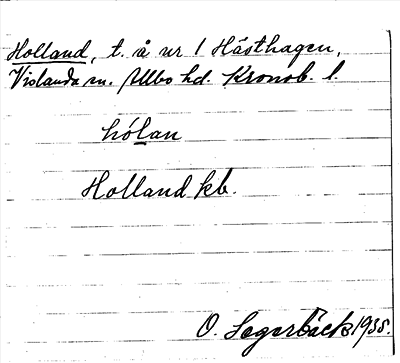 Holland, t. å nr 1 Hästhagen,
Vislanda sn. Allbo hd. Kronob. l.
hólan
Holland kb.
O. Lagerbäck 1935.